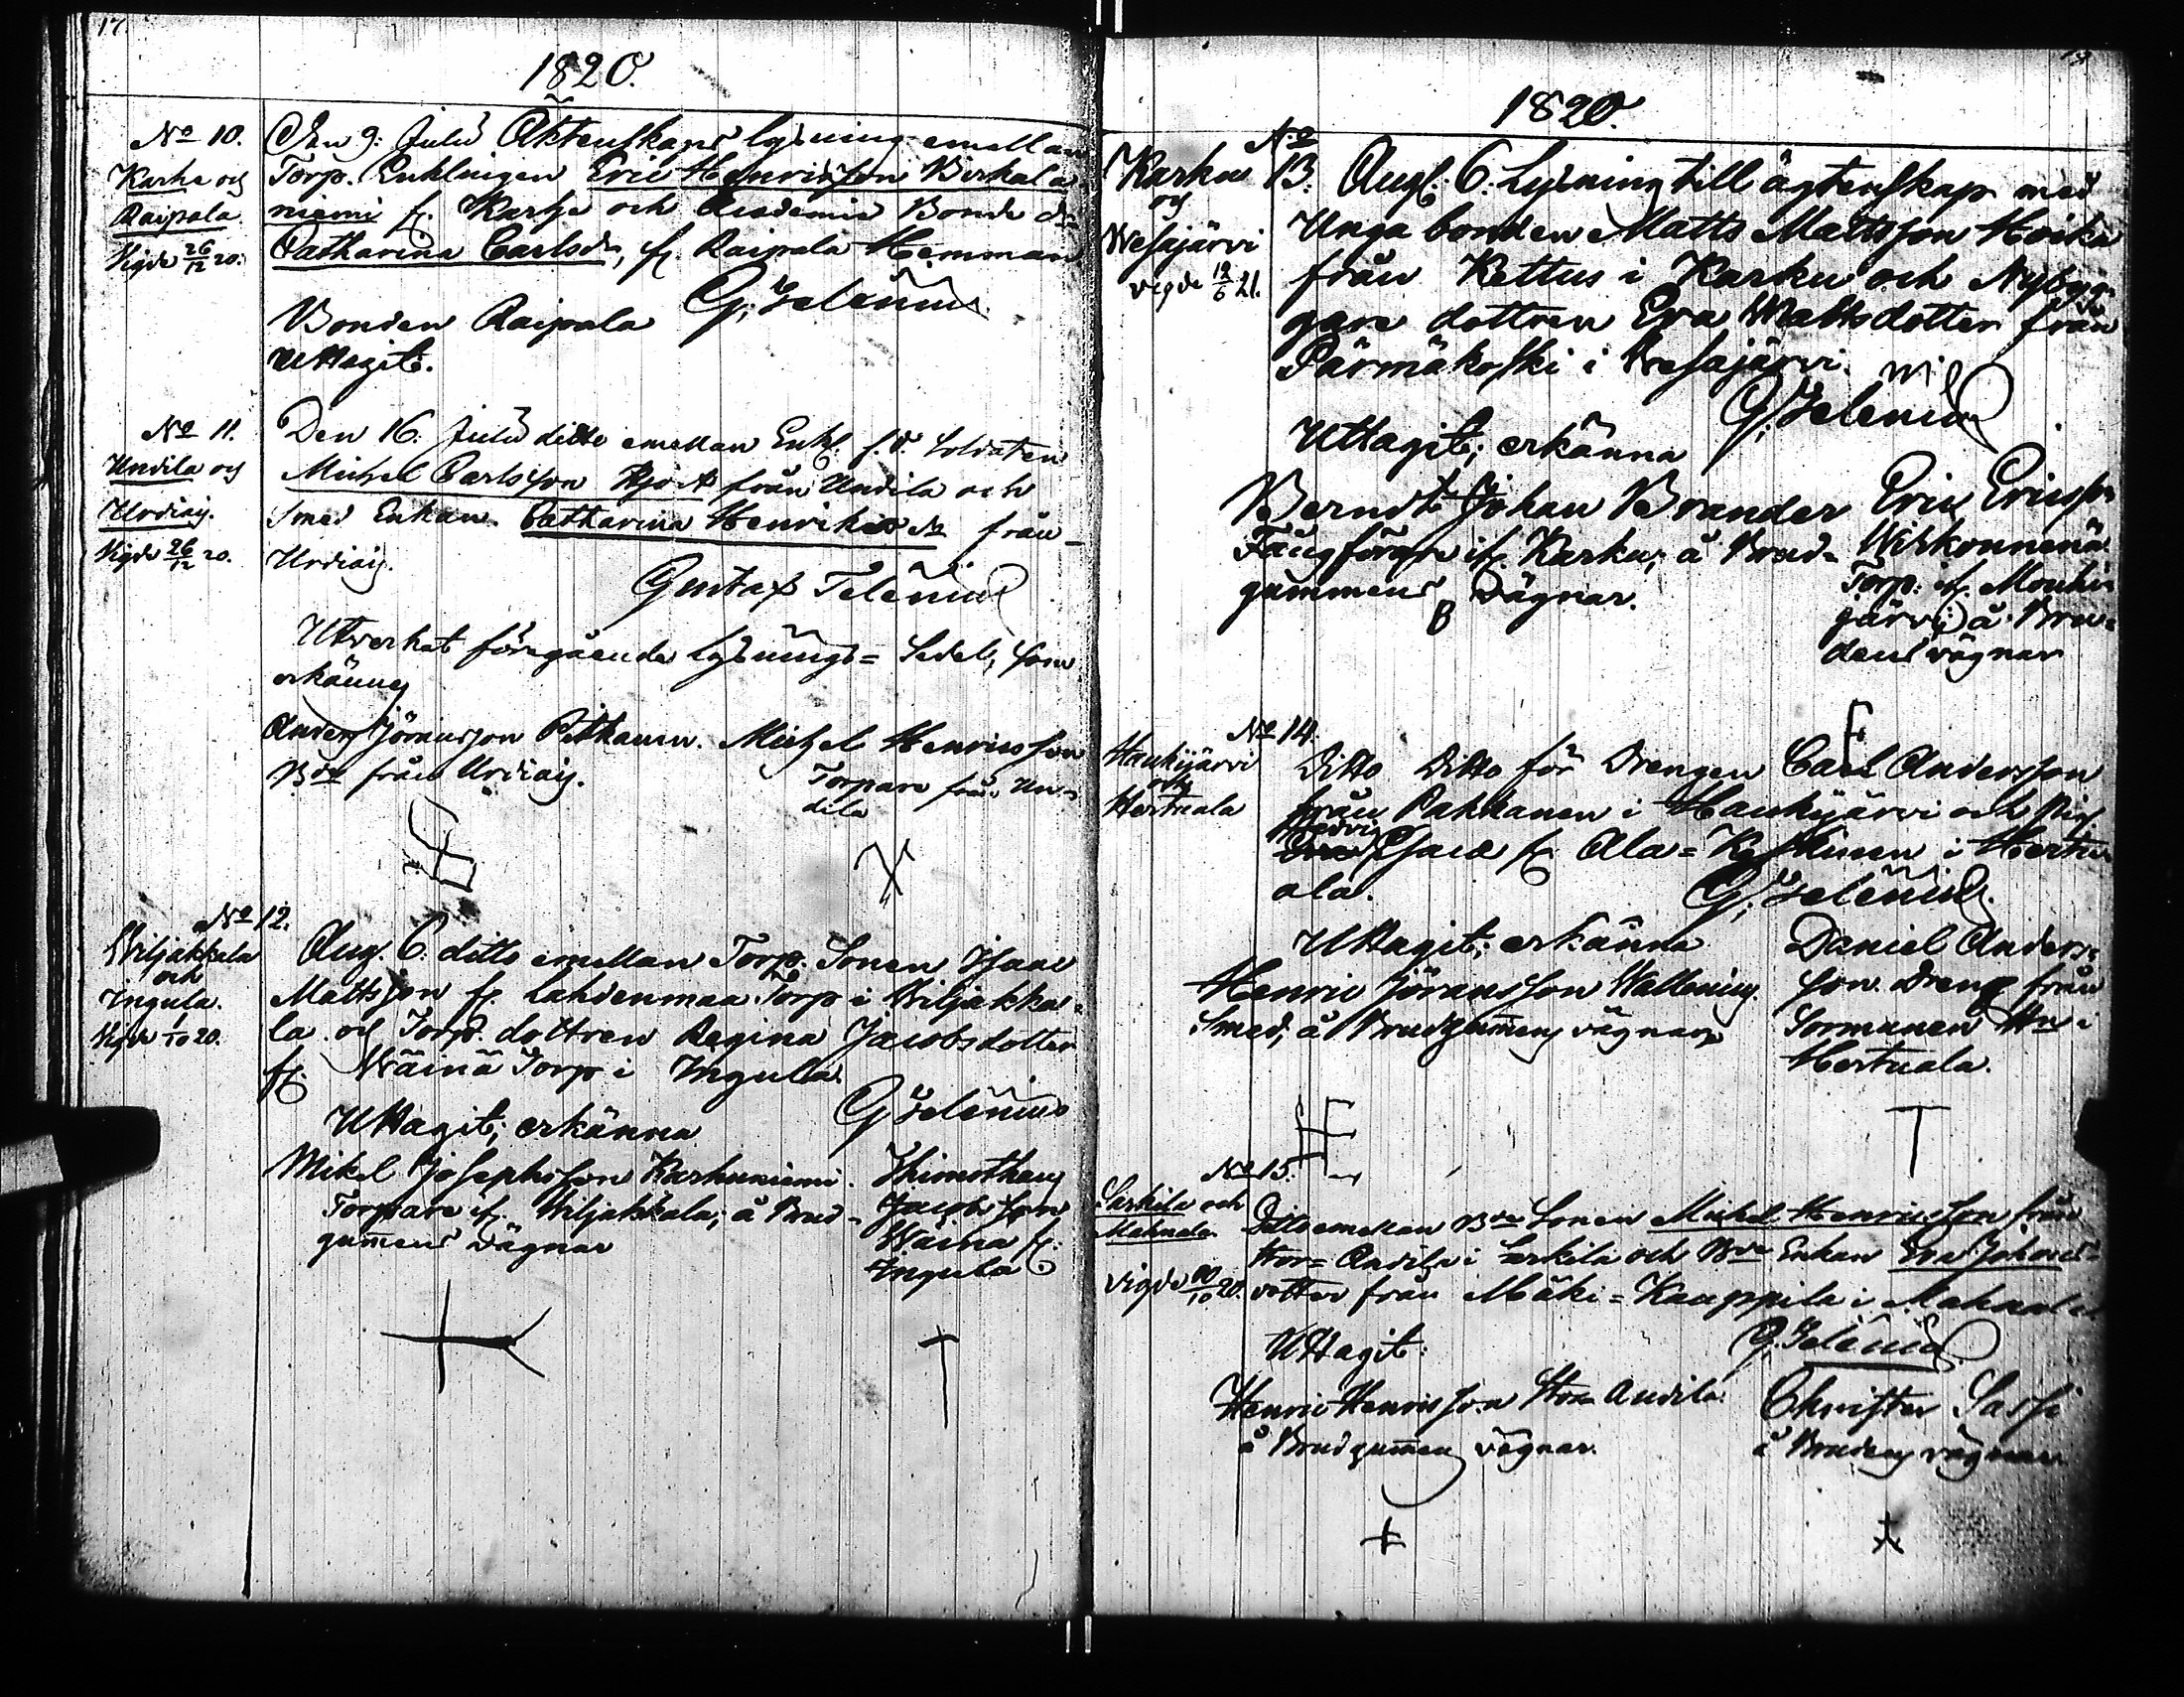 17.
1820.
No 10.
Karhe och
Raipala
Vigde 26/12 20.
Den 9: Julii Äktenskaps lysning emellan
Torp. Enklingen Eric Henricsson Birkala
niemi fr. Karhe och Academie Bonde dr
Catharina Carlsdr, fr. Raipala Hemman
G. Telenius
Bonden Raipala
Uttagit.
No 11.
Undila och
Urdiais.
Vigde 26/12 20.
Den 16. Julii ditto emellan Enkl. f.d. Soldaten
Michel Carlsson Hjort från Undila och
Smed Enkan Catharina Henriksdr från
Urdiais.
Gustaf Telenius
Utverkat föregående lysnings= Sedel, som
erkännes
Anders Jöransson Pitkanen.
Bde från Urdiais.
Michel Henricsson
Torpare från Un=
dila
No 12.
Wiljakkala
och
Ingula.
Vigde 1/10 20.
Aug. 6. ditto emellan Torp. Sonen Isaac
Mattsson fr. Lahdenmaa Torp i Wiljakka=
la och Torp. dottren Regina Jacobsdotter
fr. Wäinä Torp i Ingula.
G Telenius
Uttagit; erkänna
Mikel Josephsson Karhuniemi.
Torpare if. Wiljakkala, å Brud=
gummens vägnar
Thimotheus
Jacobsson
Wäinä fr.
Ingula
1820.
No
Karku
och
Wesajärvi
vigde 12/6 21.
13. Aug: 6: Lysning till ägtenskap med
Unga bonden Matts Mattsson Hoika
från Kettus i Karku och Nybyg=
gare dottren Eva Mattsdotter från
Pärmäkoski i Wesajärvi.
G. Telenius
Uttagit; erkänna
Berndt Johan Brander
Fangförare if. Karku, å Brud=
gummens vägnar.
B
Eric Ericsson
Wirkonnenä
Torp. if. Mouhi=
järvi) å Bru=
dens vägnar
No 14.
Haukijärvi
och
Hertuala
Ditto Ditto för Drengen Carl Andersson
från Pakkanen i Haukijärvi och Pig
Hedvig
Isacs fr. Ala= Keskinen i Hertu=
ala.
G. Telenius.
Uttagit; erkänna
Henric Jöransson Wallenius.
Smed, å Brudgummens vägnar
Daniel Anders=
son Dreng från
Sormunen Hn i
Hertuala.
No 15.
Sarkila och
Mahnala
Vigde 10/10 20.
Ditto emellan Bde Sonen Michel Henricsson från
Stor= Andila i Sarkila och Bde Enkan Eva Johans=
dotter från Mäki= Kauppila i Mahnala
G. Telenius
Uttagit:
Henric Henricsson Stor Andila
å Brudgummens vägnar.
Christer Sassi
å Brudens vägnar